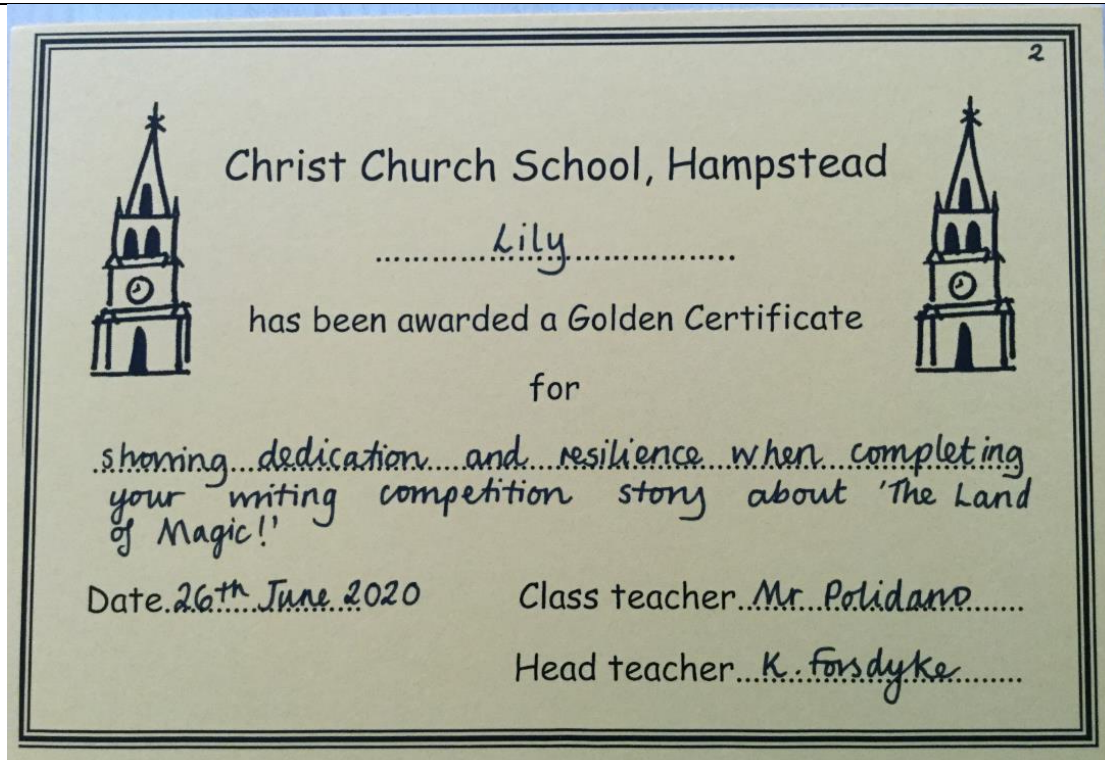 2
Christ Church School, Hampstead
Lily
has been awarded a Golden Certificate
for
showing dedication and resilience when completing
your writing competition story about 'The Land
of Magic!'
Date 26th June 2020 Class teacher Mr Polidano
Head teacher K. Forsdyke